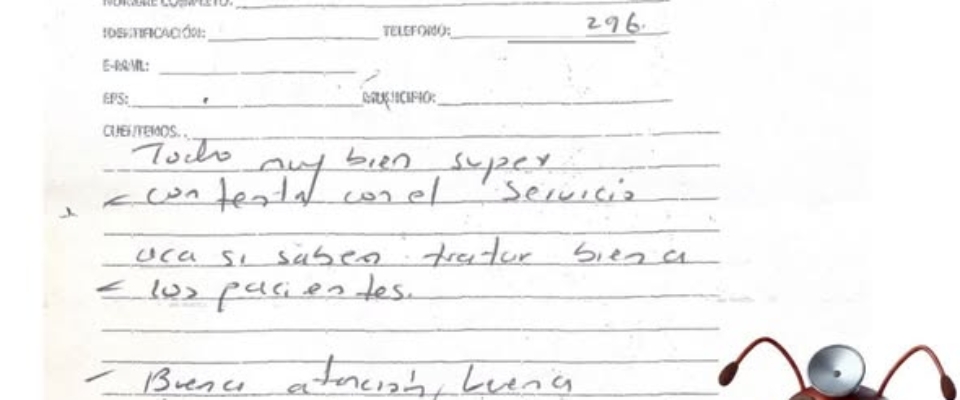 NOMBRE COMPLETO:
IDENTIFICACIÓN: TELEFONO: 296.
E-MAIL:
EPS: MUNICIPIO:
CUENTENOS..
Todo muy bien super
contenta con el servicio
aca si saben tratar bien a
los pacientes.
Buena atención, buena